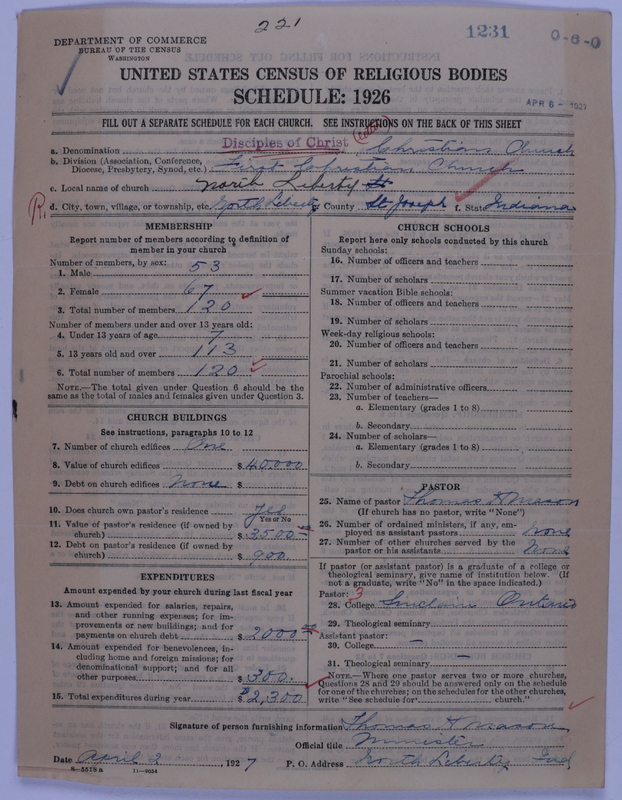 221
1231
0-6-0
DEPARTMENT OF COMMERCE
BUREAU OF THE CENSUS
WASHINGTON
UNITED STATES CENSUS OF RELIGIOUS BODIES
SCHEDULE: 1926
APR 6 - 1927
FILL OUT A SEPARATE SCHEDULE FOR EACH CHURCH. SEE INSTRUCTIONS ON THE BACK OF THIS SHEET
a. Denomination Disciples of Christ Christian Church
b. Division (Association, Conference, Diocese, Presbytery, Synod, etc.) First Christian Church
c. Local name of church North Liberty
d. City, town, village, or township, etc. North Liberty County St Joseph f. State Indiana
MEMBERSHIP
Report number of members according to definition of
member in your church
Number of members, by sex:
1. Male 53
2. Female 67
3. Total number of members 120
Number of members under and over 13 years old:
4. Under 13 years of age 7
5. 13 years old and over 113
6. Total number of members 120
NOTE.—The total given under Question 6 should be the
same as the total of males and females given under Question 3.
CHURCH BUILDINGS
See instructions, paragraphs 10 to 12
7. Number of church edifices One
8. Value of church edifices $ 40,000
9. Debt on church edifices None $
10. Does church own pastor's residence Yes
Yes or No
11. Value of pastor's residence (if owned by
church) $ 3500
12. Debt on pastor's residence (if owned by
church) $ 900
EXPENDITURES
Amount expended by your church during last fiscal year
13. Amount expended for salaries, repairs,
and other running expenses; for im-
provements or new buildings; and for
payments on church debt $ 2000
14. Amount expended for benevolences, in-
cluding home and foreign missions; for
denominational support; and for all
other purposes $ 300.
15. Total expenditures during year $ 2,300
CHURCH SCHOOLS
Report here only schools conducted by this church
Sunday schools:
16. Number of officers and teachers
17. Number of scholars
Summer vacation Bible schools:
18. Number of officers and teachers
19. Number of scholars
Week-day religious schools:
20. Number of officers and teachers
21. Number of scholars
Parochial schools:
22. Number of administrative officers
23. Number of teachers—
a. Elementary (grades 1 to 8)
b. Secondary
24. Number of scholars—
a. Elementary (grades 1 to 8)
b. Secondary
PASTOR
25. Name of pastor Thomas H Mason
(If church has no pastor, write "None")
26. Number of ordained ministers, if any, em-
ployed as assistant pastors None
27. Number of other churches served by the
pastor or his assistants None
If pastor (or assistant pastor) is a graduate of a college or
theological seminary, give name of institution below. (If
not a graduate, write "No" in the space indicated.)
Pastor: 3
28. College Sinclair Ontario
29. Theological seminary
Assistant pastor:
30. College —
31. Theological seminary —
NOTE.—Where one pastor serves two or more churches,
Questions 28 and 29 should be answered only on the schedule
for one of the churches; on the schedules for the other churches,
write "See schedule for church."
Signature of person furnishing information Thomas H Mason
Official title Minister
Date April 2, 1927 P. O. Address North Liberty Ind
8-5518a 11-9054